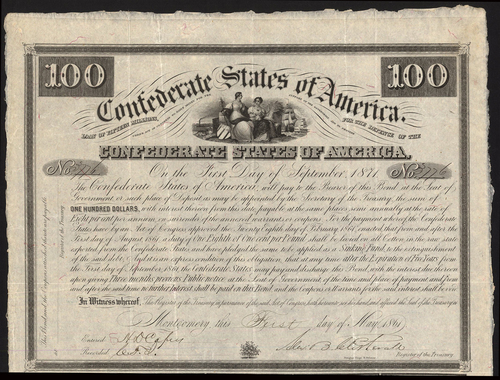 100
100
Confederate States of America.
LOAN OF FIFTEEN MILLIONS,
FOR THE DEFENSE OF THE
CONFEDERATE STATES OF AMERICA.
No.
On the First Day of September, 1871
No.
The Confederate States of America, will pay to the Bearer of this Bond at the Seat of
Government, or such place of Deposit as may be appointed by the Secretary of the Treasury, the sum of
ONE HUNDRED DOLLARS, with interest from this date, payable at the same place semi-annually, at the rate of
Eight per cent per annum, on surrender of the annexed warrants or coupons. For the payment whereof the Confederate
States have by an Act of Congress approved the Twenty Eighth day of February 1861 enacted that from and after the
First day of August 1861 a duty of One Eighth of One cent per Pound, shall be levied on all Cotton in the raw state
exported from the Confederate States and have pledged the same to be applied as a Sinking Fund, to the extinguishment
of the said debt. And it is an express condition of this obligation, that at any time after the Expiration of Five Years from
the First day of September 1861 the Confederate States may pay and discharge this Bond, with the interest due thereon
upon giving Three months previous Public notice at the Seat of Government of the time and place of payment and from
and after the said time no further Interest shall be paid on this Bond and the Coupons and Warrants for the said interest shall be void
In Witness whereof, The Register of the Treasury in pursuance of the said Act of Congress hath hereunto set his hand and affixed the Seal of the Treasury in
Montgomery this First day of May 1861
Entered
Recorded
Register of the Treasury